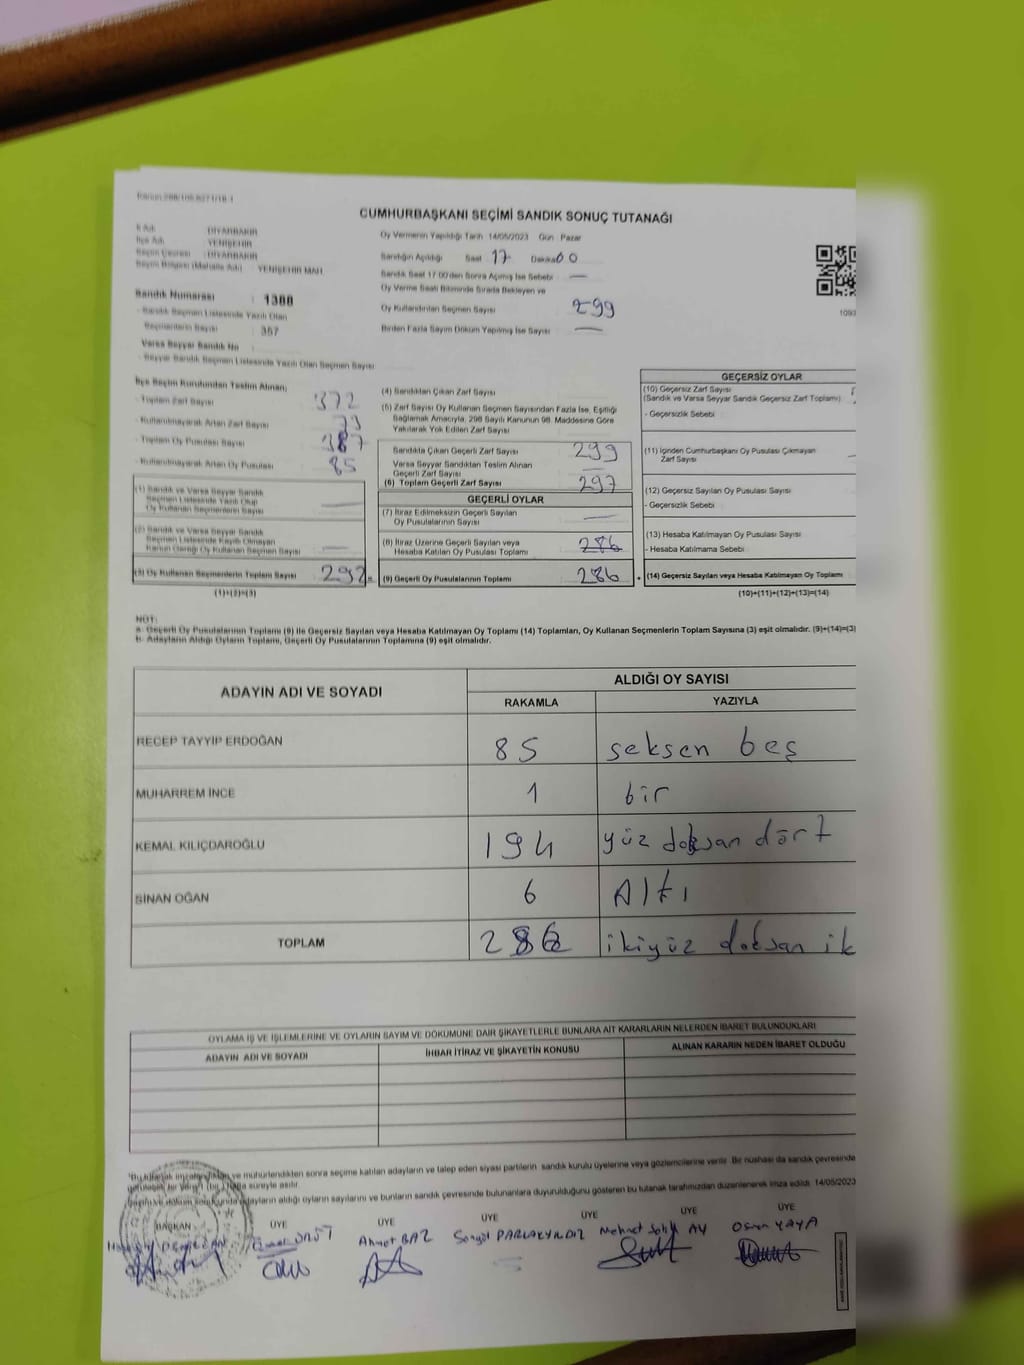 CUMHURBAŞKANI SEÇİMİ SANDIK SONUÇ TUTANAĞI
İl Adı : DİYARBAKIR
İlçe Adı : YENİŞEHİR
Seçim Çevresi : DİYARBAKIR
Seçim Bölgesi (Mahalle Adı) : YENİŞEHİR MAH.
Sandık Numarası : 1388
- Sandık Seçmen Listesinde Yazılı Olan
Seçmenlerin Sayısı : 367
Varsa Seyyar Sandık No :
- Seyyar Sandık Seçmen Listesinde Yazılı Olan Seçmen Sayısı
Oy Vermenin Yapıldığı Tarih 14/05/2023 Gün Pazar
Sandığın Açıldığı Saat 17 Dakika 00
Sandık Saat 17:00'den Sonra Açılmış İse Sebebi —
Oy Verme Saati Bitiminde Sırada Bekleyen ve
Oy Kullandırılan Seçmen Sayısı 299
Birden Fazla Sayım Döküm Yapılmış İse Sayısı —
İlçe Seçim Kurulundan Teslim Alınan;
- Toplam Zarf Sayısı 372
- Kullanılmayarak Artan Zarf Sayısı 73
- Toplam Oy Pusulası Sayısı 387
- Kullanılmayarak Artan Oy Pusulası 85
(1) Sandık ve Varsa Seyyar Sandık
Seçmen Listesinde Yazılı Olup
Oy Kullanan Seçmenlerin Sayısı —
(2) Sandık ve Varsa Seyyar Sandık
Seçmen Listesinde Kayıtlı Olmayan
Kanun Gereği Oy Kullanan Seçmen Sayısı —
(3) Oy Kullanan Seçmenlerin Toplam Sayısı 292 =
(1)+(2)=(3)
(4) Sandıktan Çıkan Zarf Sayısı
(5) Zarf Sayısı Oy Kullanan Seçmen Sayısından Fazla İse, Eşitliği
Sağlamak Amacıyla, 298 Sayılı Kanunun 98. Maddesine Göre
Yakılarak Yok Edilen Zarf Sayısı
Sandıkta Çıkan Geçerli Zarf Sayısı 299
Varsa Seyyar Sandıktan Teslim Alınan
Geçerli Zarf Sayısı —
(6) Toplam Geçerli Zarf Sayısı 297
GEÇERLİ OYLAR
(7) İtiraz Edilmeksizin Geçerli Sayılan
Oy Pusulalarının Sayısı —
(8) İtiraz Üzerine Geçerli Sayılan veya
Hesaba Katılan Oy Pusulası Toplamı 286
(9) Geçerli Oy Pusulalarının Toplamı 286 +
GEÇERSİZ OYLAR
(10) Geçersiz Zarf Sayısı
(Sandık ve Varsa Seyyar Sandık Geçersiz Zarf Toplamı)
- Geçersizlik Sebebi
(11) İçinden Cumhurbaşkanı Oy Pusulası Çıkmayan
Zarf Sayısı
(12) Geçersiz Sayılan Oy Pusulası Sayısı
- Geçersizlik Sebebi
(13) Hesaba Katılmayan Oy Pusulası Sayısı
- Hesaba Katılmama Sebebi
(14) Geçersiz Sayılan veya Hesaba Katılmayan Oy Toplamı
(10)+(11)+(12)+(13)=(14)
NOT:
a- Geçerli Oy Pusulalarının Toplamı (9) ile Geçersiz Sayılan veya Hesaba Katılmayan Oy Toplamı (14) Toplamları, Oy Kullanan Seçmenlerin Toplam Sayısına (3) eşit olmalıdır. (9)+(14)=(3)
b- Adayların Aldığı Oyların Toplamı, Geçerli Oy Pusulalarının Toplamına (9) eşit olmalıdır.
ADAYIN ADI VE SOYADI
ALDIĞI OY SAYISI
RAKAMLA YAZIYLA
RECEP TAYYİP ERDOĞAN 85 seksen beş
MUHARREM İNCE 1 bir
KEMAL KILIÇDAROĞLU 194 yüz doksan dört
SİNAN OĞAN 6 Altı
TOPLAM 286 ikiyüz doksan ik
OYLAMA İŞ VE İŞLEMLERİNE VE OYLARIN SAYIM VE DÖKÜMÜNE DAİR ŞİKAYETLERLE BUNLARA AİT KARARLARIN NELERDEN İBARET BULUNDUKLARI
ADAYIN ADI VE SOYADI İHBAR İTİRAZ VE ŞİKAYETİN KONUSU ALINAN KARARIN NEDEN İBARET OLDUĞU
ve mühürlendikten sonra seçime katılan adayların ve talep eden siyasi partilerin sandık kurulu üyelerine veya gözlemcilerine verilir. Bir nüshası da sandık çevresinde
süreyle asılır.
adayların aldığı oyların sayılarını ve bunların sandık çevresinde bulunanlara duyurulduğunu gösteren bu tutanak tarafımızdan düzenlenerek imza edildi. 14/05/2023
BAŞKAN ÜYE ÜYE ÜYE ÜYE ÜYE
Ahmet BAZ Songül PARLAKYILDIZ Mehmet Salih AY Osman YAYA